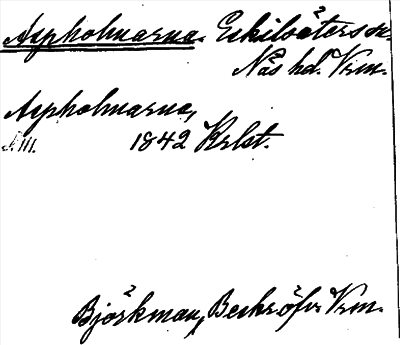 Aspholmarna. Eskilsäters sn.
Näs hd. Vrm.
Aspholmarna,
1842 Krlst.
Björkman, Beskröfv. Vrm.